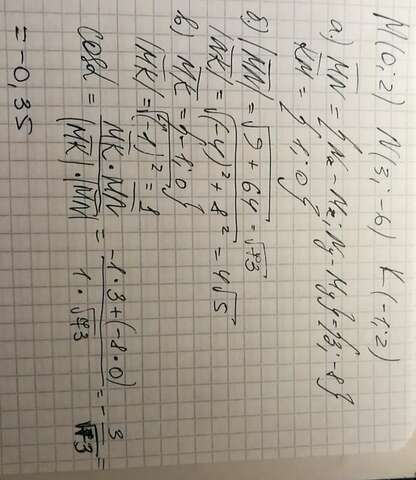 M(0; 2) N(3; -6) K(-1; 2)
a) MN = {Nx - Mx; Ny - My} = {3; -8}
KM = {1; 0}
б) |MN| = √9 + 64 = √73
|NK| = √(-4)² + 8² = 4√5
в) MK = {-1; 0}
|MK| = √(-1)² = 1
cosα = MK · MN / |MK| · |MN| = -1 · 3 + (-8 · 0) / 1 · √73 = - 3 / √73 =
= -0,35